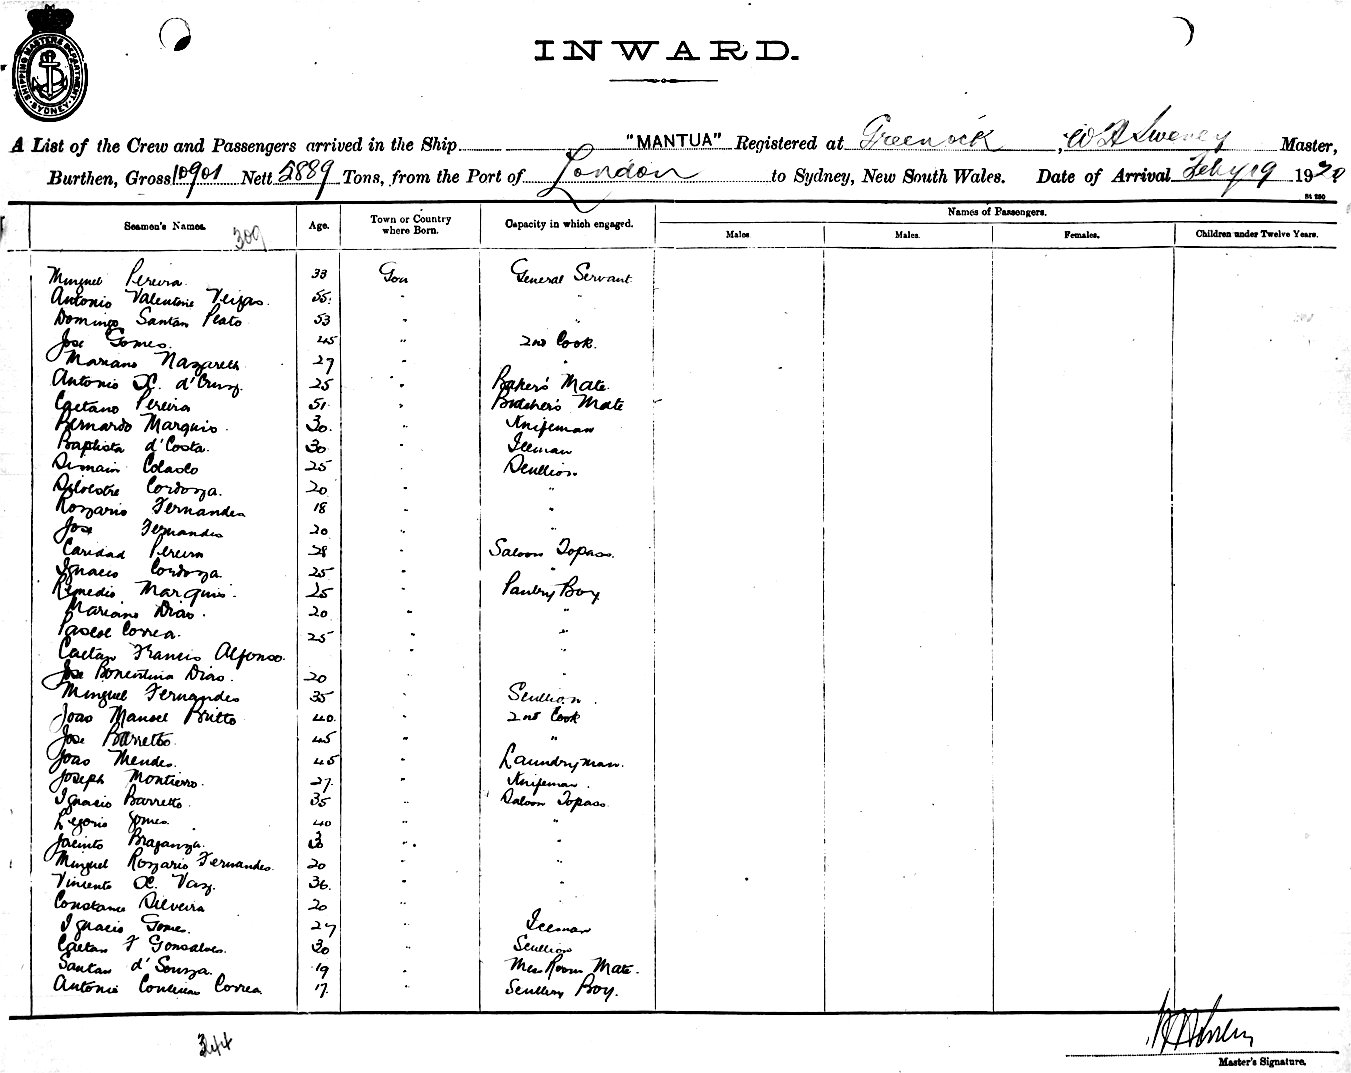 SHIPPING MASTERS DEPARTMENT
SYDNEY
INWARD.
A List of the Crew and Passengers arrived in the Ship "MANTUA" Registered at Greenock, W H Sweny Master,
Burthen, Gross 10901 Nett 5889 Tons, from the Port of London to Sydney, New South Wales. Date of Arrival Feby 19 1920
Seamen's Names. 309 Age. Town or Country where Born. Capacity in which engaged. Names of Passengers.
Males. Males. Females. Children under Twelve Years.
Minguel Pereira 33 Goa General Servant
Antonio Valentine Veigas 55 " "
Domingo Santan Peato 53 " "
Jose Gomes 45 " 2nd Cook.
Mariano Nazareth 27 " "
Antonio X. d'Cruz 25 " Baker's Mate
Caetano Pereira 51 " Butcher's Mate
Bernardo Marquis 30 " Knifeman
Baptista d'Costa 30 " Iceman
Colaco 25 " Scullion
Cordoza 20 " "
Rozario Fernandes 18 " "
Jose Fernandes 20 " "
Caridad Pereira 28 " Saloon Topass.
Ignacio Cordoza 25 " "
Remedio Marquis 25 " Pantry Boy
Mariano Dias 20 " "
Pascoe Correa 25 " "
Caetan Francis Alfonso " "
Jose Bonentura Dias 20 " "
Minguel Fernandes 35 " Scullion
Joao Manoel Britto 40 " 2nd Cook
Jose Barretto 45 " "
Joao Mendes 45 " Laundryman
Joseph Montierro 27 " Knifeman
Ignacio Barretto 35 " Saloon Topass
Gomes 40 " "
Jacinto Braganza 3 " "
Minguel Rozario Fernandes 20 " "
Vincente X. Vaz 36 " "
Constance Silveira 20 " "
Ignacio Gomes 27 " Iceman
Caetan F Gonsalves 30 " Scullion
Santan d'Souza 19 " Mess Room Mate
Antonio Correa 17 " Scullery Boy.
344
Master's Signature.